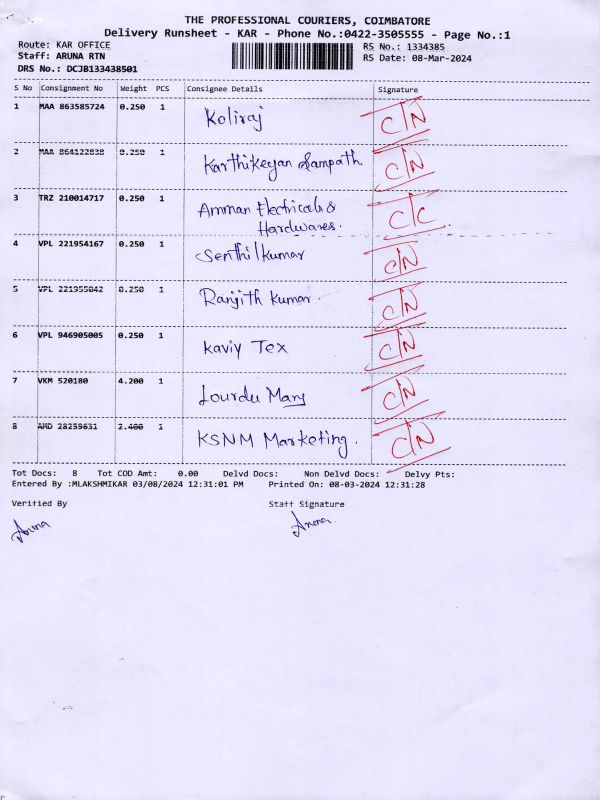 THE PROFESSIONAL COURIERS, COIMBATORE
Delivery Runsheet - KAR - Phone No.:0422-3505555 - Page No.:1
Route: KAR OFFICE RS No.: 1334385
Staff: ARUNA RTN RS Date: 08-Mar-2024
DRS No.: DCJB133438501
S No Consignment No Weight PCS Consignee Details Signature
1 MAA 863585724 0.250 1 Koliraj C/N
2 MAA 864122838 0.250 1 Karthikeyan Sampath. C/N
3 TRZ 210014717 0.250 1 Amman Electricals & C/C
Hardwares.
4 VPL 221954167 0.250 1 Senthilkumar C/N
5 VPL 221955042 0.250 1 Ranjith Kumar. C/N
6 VPL 946905005 0.250 1 Kaviy Tex C/N
7 VKM 520180 4.200 1 Lourdu Mary C/N
8 AMD 28259631 2.400 1 KSNM Marketing. C/N
Tot Docs: 8 Tot COD Amt: 0.00 Delvd Docs: Non Delvd Docs: Delvy Pts:
Entered By :MLAKSHMIKAR 03/08/2024 12:31:01 PM Printed On: 08-03-2024 12:31:28
Verified By Staff Signature
Aruna Aruna